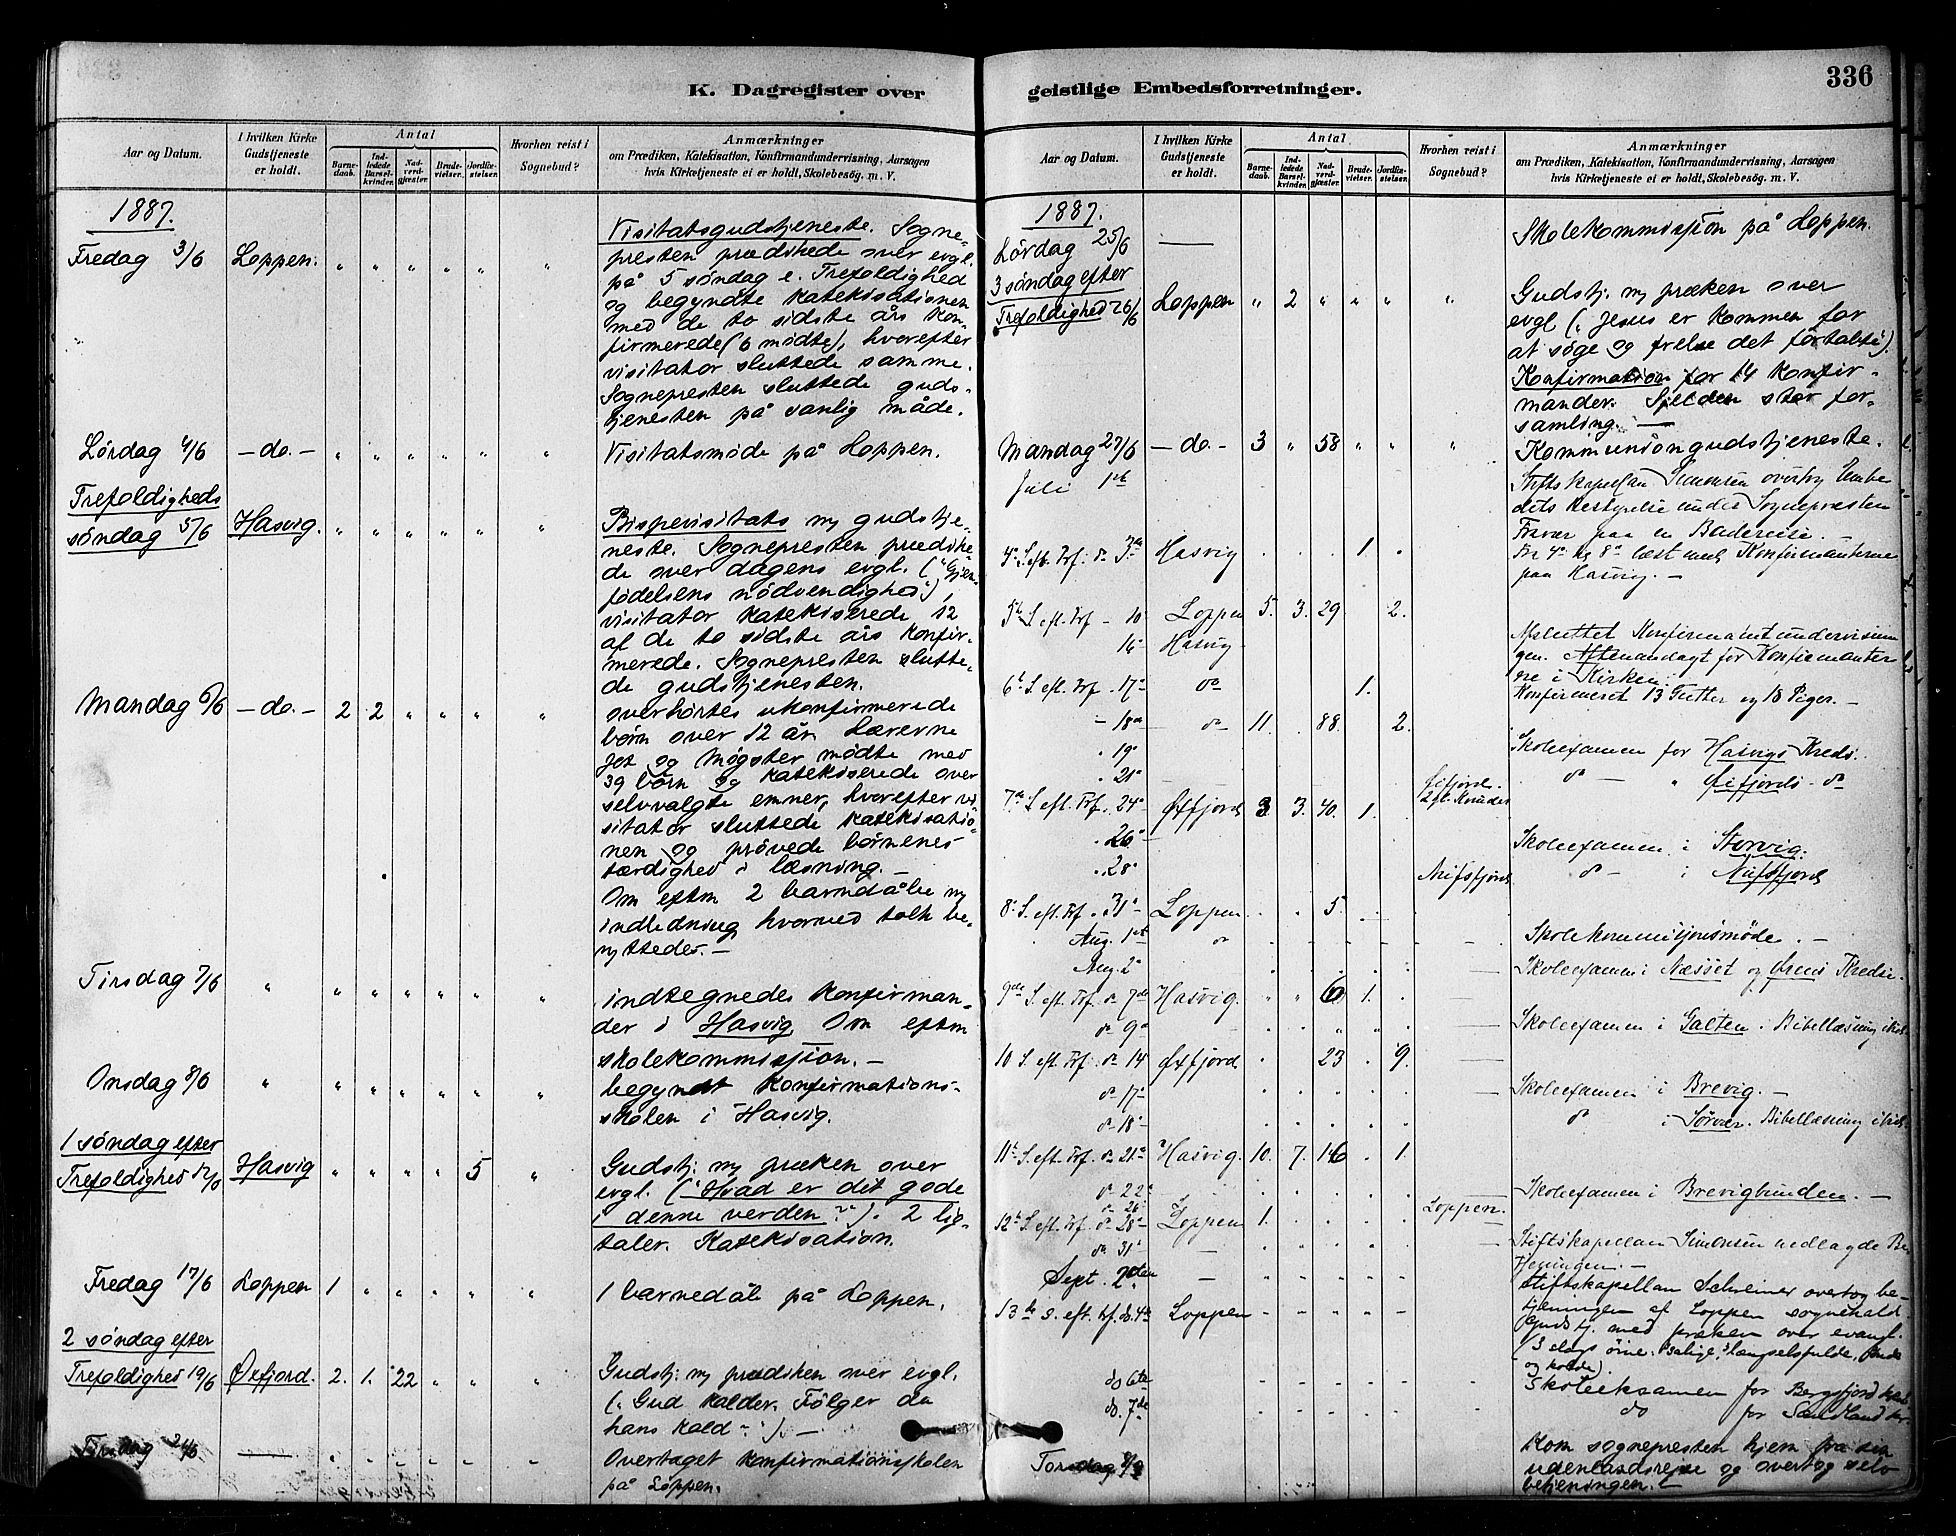 336
K. Dagregister over
Aar og Datum.
I hvilken Kirke Gudstjeneste er holdt.
Antal
Barne-daab.
Ind-ledede Barsel-kvinder.
Nad-verd-gjæster.
Brude-vielser.
Jordfæ-stelser.
Hvorhen reist i Sognebud?
Anmærkninger
om Prædiken, Katekisation, Konfirmandundervisning, Aarsagen
hvis Kirketjeneste ei er holdt, Skolebesøg. m. V.
1887.
Fredag 3/6 Loppen. " " " " " " Visitatsgudstjeneste. Sogne-
presten prædikede over evgl.
på 5 søndag e. Trefoldighed
og begyndte katekisationen
med de to sidste års kon-
firmerede (6 mødte), hvorefter
visitator sluttede samme.
Sognepresten sluttede guds-
tjenesten på vanlig måde.
Lørdag 4/6 - do. - " " " " " " Visitatsmøde på Loppen.
Trefoldigheds
søndag 5/6 Hasvig. " " " " " " Bispevisitats m/ gudstje-
neste. Sognepresten prædike-
de over dagens evgl. ("Gjen-
fødelsens nødvendighed"),
visitator katekiserede 12
af de to sidste års konfir-
merede. Sognepresten slutte-
de gudstjenesten.
Mandag 6/6 - do. - 2 2 " " " " overhørtes ukonfirmerede
børn over 12 år. Lærerne
Jot og Møgster mødte med
39 børn og katekiserede over
selvvalgte emner, hvorefter vi-
sitator sluttede katekisatio-
nen og prøvede børnenes
færdighed i læsning. -
Om eftm 2 barnedåbe m/
indledning hvorved tolk be-
nyttedes. -
Tirsdag 7/6 " " " " " " " indtegnedes konfirman-
der i Hasvig. Om eftm
skolekommission. -
Onsdag 8/6 " " " " " " " begyndt konfirmations-
skolen i Hasvig.
1 søndag efter
Trefoldighed 12/6 Hasvig " " " " 5 " Gudstj. m/ præken over
evgl. ("Hvad er det gode
i denne verden?"). 2 lig-
taler. Katekisation.
Fredag 17/6 Loppen 1 " " " " " 1 barnedåb på Loppen.
2 søndag efter
Trefoldighed 19/6 Øxfjord. 2. 1. 22 " " " Gudstj. m/ prædiken over evgl.
("Gud kalder. Følger du
hans kald?"). -
Tirsdag - " " " " " " Overtaget konfirmationsskolen
på Loppen.
geistlige Embedsforretninger.
Aar og Datum.
I hvilken Kirke Gudstjeneste er holdt.
Antal
Barne-daab.
Ind-ledede Barsel-kvinder.
Nad-verd-gjæster.
Brude-vielser.
Jordfæ-stelser.
Hvorhen reist i Sognebud?
Anmærkninger
om Prædiken, Katekisation, Konfirmandundervisning, Aarsagen
hvis Kirketjeneste ei er holdt, Skolebesøg. m. V.
1887.
Lørdag 25/6 - Skolekommission på Loppen.
3 søndag efter
Trefoldighed 26/6 Loppen " 2 " " " " Gudstj. m/ præken over
evgl. ("Jesus er kommen for
at søge og frelse det fortabte").
Konfirmation for 14 konfir-
mander. Sjelden stor for-
samling. -
Mandag 27/6 - do - 3 " 58 " " " Kommuniongudstjeneste.
Juli 1ste Stiftskapellan Simonsen overtog Embe-
dets Bestyrelse under Sognepresten
Fravær paa en Badereise. -
4de S. eft. Trf. do 3die Hasvig . . . 1. . Fra 4de til 8de læst med Konfirmanterne
paa Hasvig. -
5te S. eft. Trf. - 10 Loppen 5. 3. 29 2.
16 Hasvig Afsluttet Konfirmantundervisnin
gen. Aftenandagt for Konfirmanter
ne i Kirken.
6te S. eft. Trf. 17de do 1. Konfirmeret 13 Gutter og 18 Piger. -
- 18de do 11. 88. 2.
" 19de Skoleexamen for Hasvigs Kreds.
" 21de do - " Øxfjords - do
7de S. eft. Trf. 24de Øxfjord 3 3. 40. 1. Øxfjord.
" 26de Skoleexamen i Storvig.
" 28de Nufsfjord do - i Nufsfjord
8de S. eft. Trf. " 31te Loppen . " 5.
Aug. 1ste do Skolekommissionsmøde. -
Aug. 2den Skoleexamen i Næsset og Ørens Kreds.
9de S. eft. Trf. do 7de Hasvig. " " 6 1.
do 9de Skoleexamen i Galten. Bibellæsning
10 S. eft. Trf. do 14 Øxfjord . 23 . 9.
do 17de Skoleexamen i Brevig. -
do 18de do i Sørvær. Bibellæsning
11te S. eft. Trf. do 21de Hasvig. 10. 7. 16 . 1.
do 22de Skoleexamen i Brevigbunden. -
do 26de Loppen.
12te S. eft. Trf. do 28de Loppen 1.
do 31te - Stiftskapellan Simonsen nedlagde Be-
tjeningen. -
Sept. 2den - Stiftskapellan Schreiner overtog be-
tjeningen af Loppen sognekald
13de S. eft. Trf. do. 4de Loppen Gudstj. med præken over evangl.
(3 slags øine: Salige, længselsfulde,
og kolde)
do 6te Skoleeksamen for Bergsfjord
do. 7de do for Sandland kr.
Torsdag 8/9 Kom sognepresten hjem fra sin
udenlandsreise og overtog selv
betjeningen. -